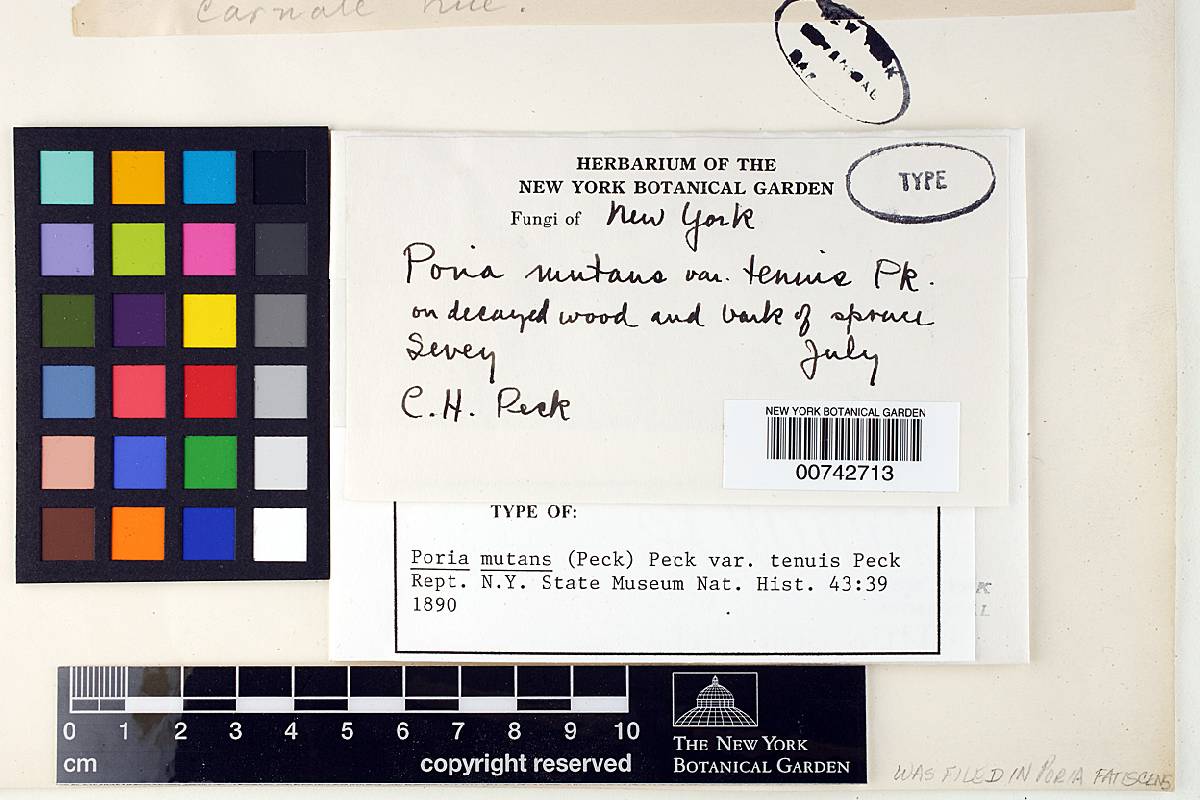 Carnate hue.
NEW YORK
BOTANICAL
HERBARIUM OF THE
NEW YORK BOTANICAL GARDEN
TYPE
Fungi of New York
Poria mutans var. tenuis Pk.
on decayed wood and bark of spruce
Sevey July
C.H. Peck
NEW YORK BOTANICAL GARDEN
00742713
TYPE OF:
Poria mutans (Peck) Peck var. tenuis Peck
Rept. N.Y. State Museum Nat. Hist. 43:39
1890
0 1 2 3 4 5 6 7 8 9 10
cm
copyright reserved
THE NEW YORK
BOTANICAL GARDEN
WAS FILED IN PORIA FATISCENS